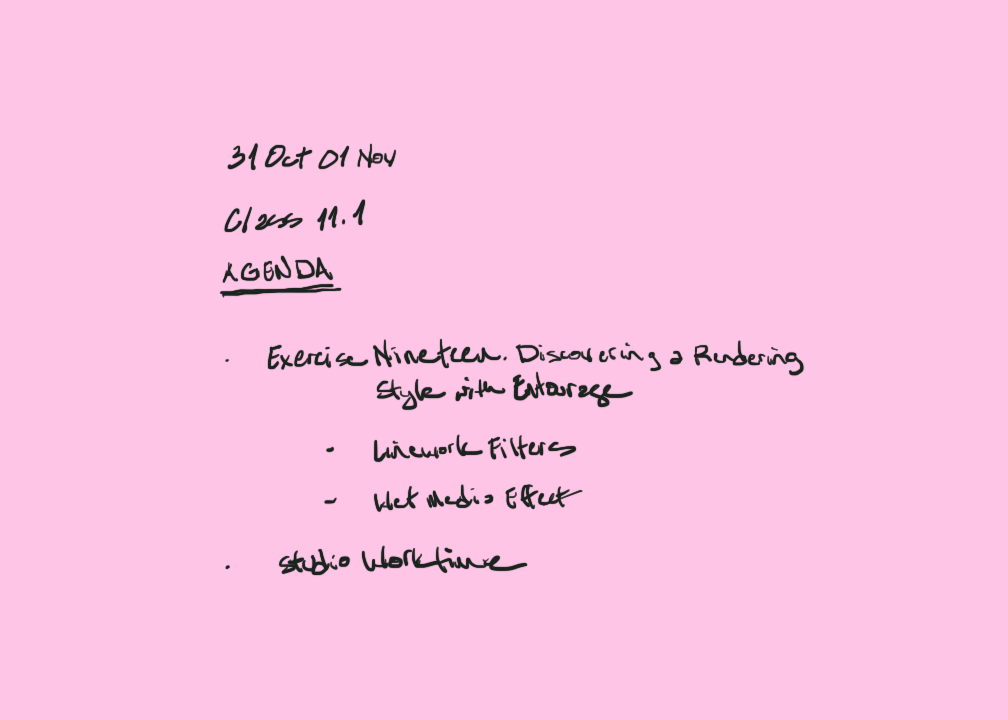 31 Oct 01 Nov
Class 11.1
AGENDA
· Exercise Nineteen. Discovering a Rendering
Style with Entourage
- Linework Filters
- Wet Media Effect
· Studio Worktime